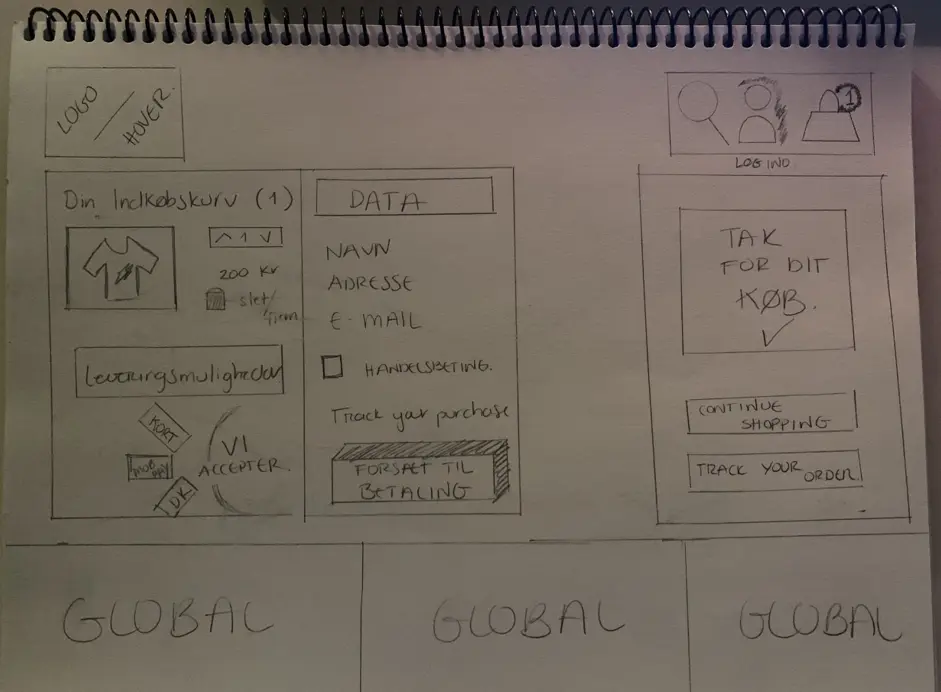 LOGO
HOVER.
1
LOG IND
Din Indkøbskurv (1)
^ 1 v
200 Kr
slet/
fjern
Leveringsmuligheder
KORT
MOB PAY
DK
VI
ACCEPTER.
DATA
NAVN
ADRESSE
E-MAIL
HANDELSBETING.
Track your purchase
FORSÆT TIL
BETALING
TAK
FOR DIT
KØB.
CONTINUE
SHOPPING
TRACK YOUR
ORDER
GLOBAL
GLOBAL
GLOBAL